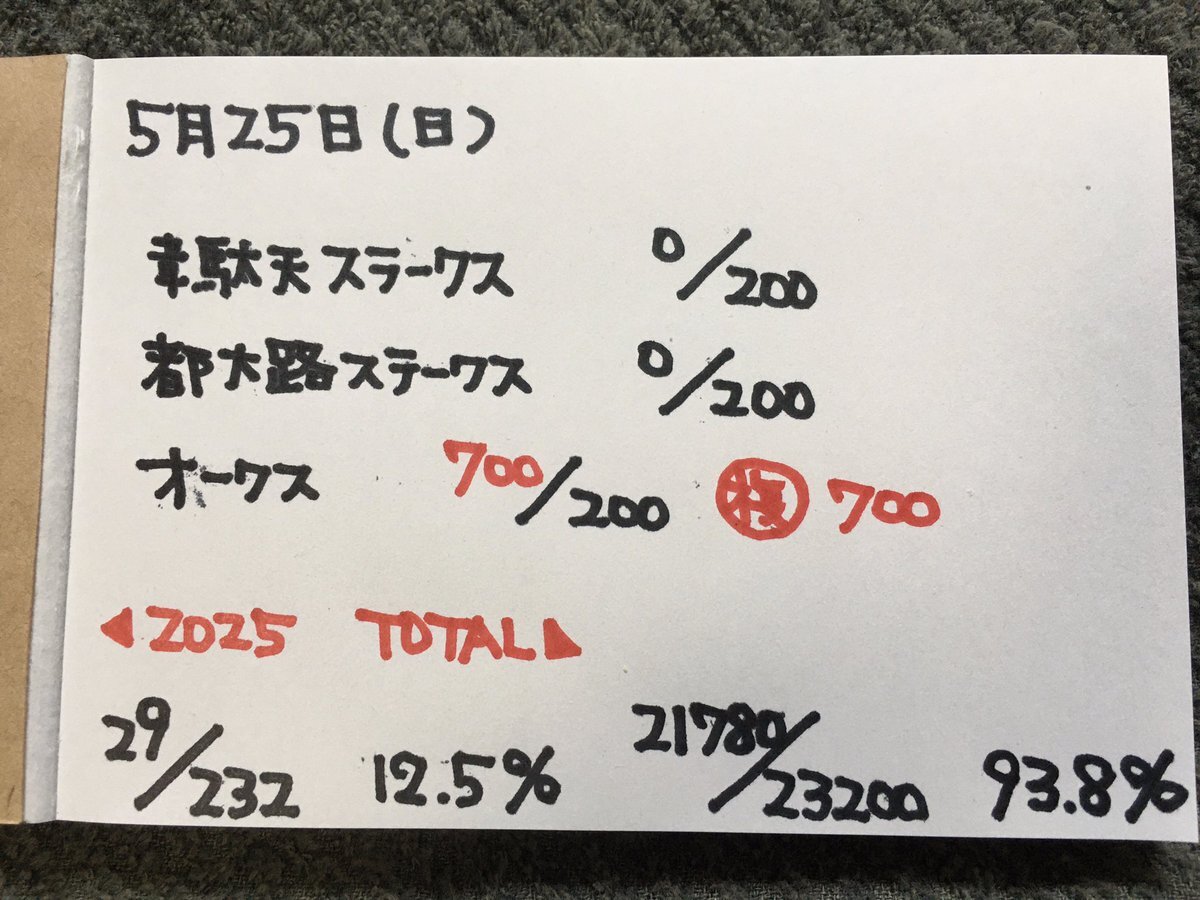 5月25日(日)
韋駄天ステークス 0/200
都大路ステークス 0/200
オークス 700/200 複 700
◀2025 TOTAL▶
29/232 12.5% 21780/23200 93.8%